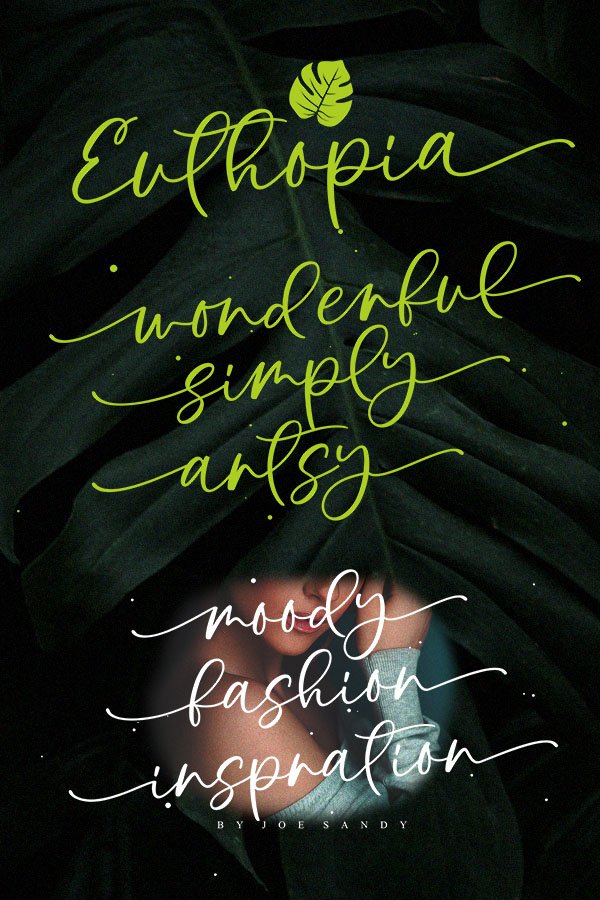 Euthopia
wonderful
simply
artsy
moody
fashion
inspration
BY JOE SANDY